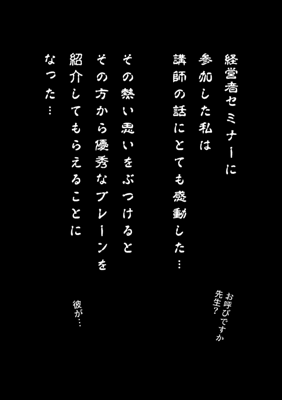 経営者セミナーに
参加した私は
講師の話にとても感動した…
その熱い思いをぶつけると
その方から優秀なブレーンを
紹介してもらえることに
なった…
お呼びですか
先生？
彼が…